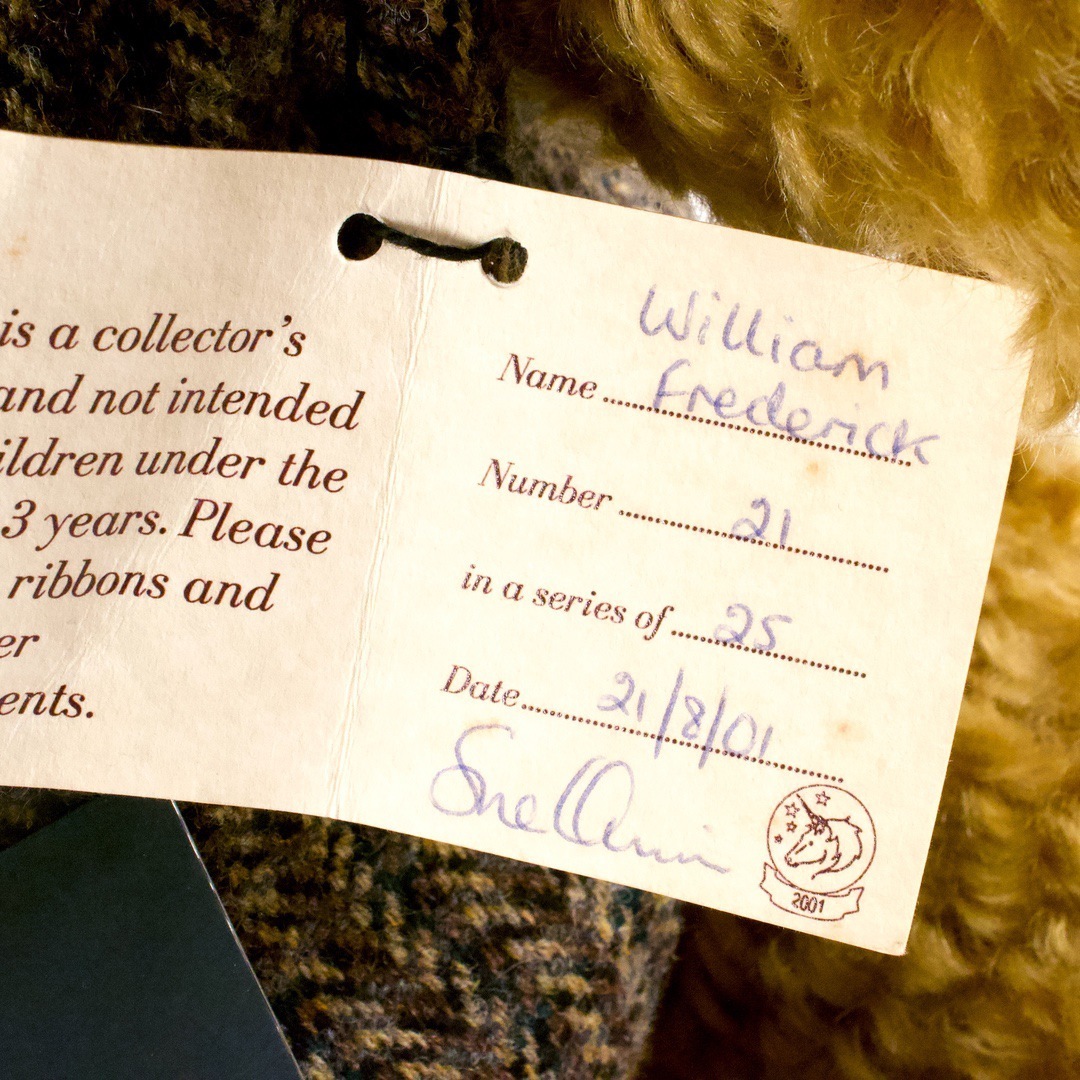 is a collector's
and not intended
ildren under the
3 years. Please
ribbons and
er
ents.
William
Name Frederick
Number 21
in a series of 25
Date 21/8/01
2001